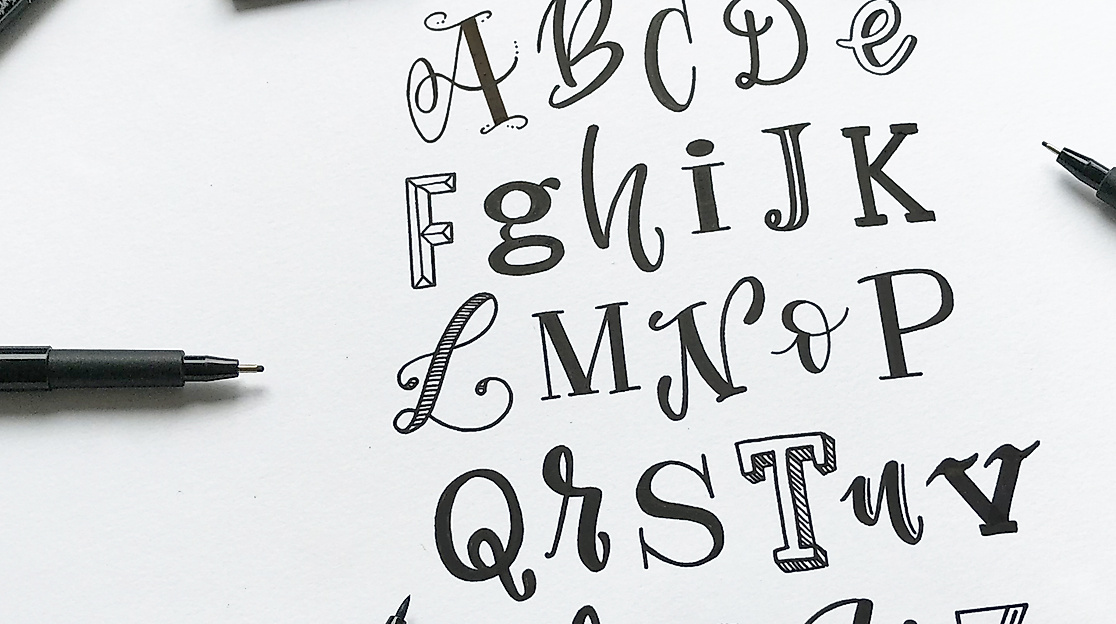 A B C D e
F g h i J K
L M N o P
Q r S T u v